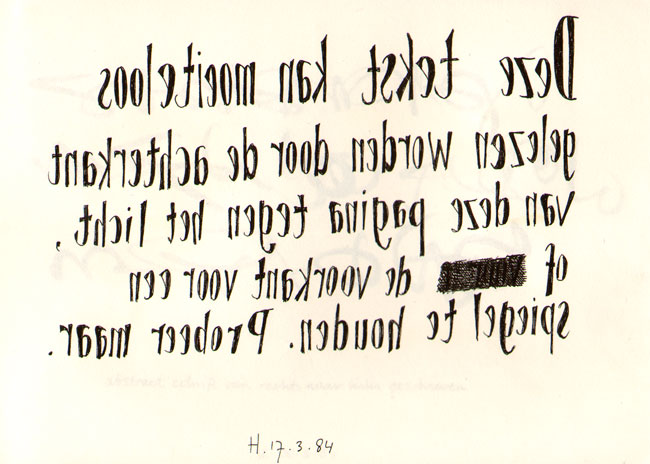 Deze tekst kan moeiteloos
gelezen worden door de achterkant
van deze pagina tegen het licht,
of de voorkant voor een
spiegel te houden. Probeer maar.
abstract schrift van rechts naar links geschreven
H. 17.3.84